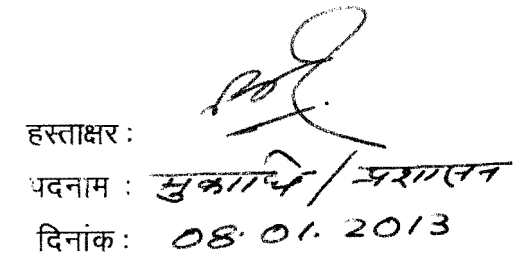 हस्ताक्षर :
पदनाम : मुकाधि / प्रशासन
दिनांक : 08.01.2013